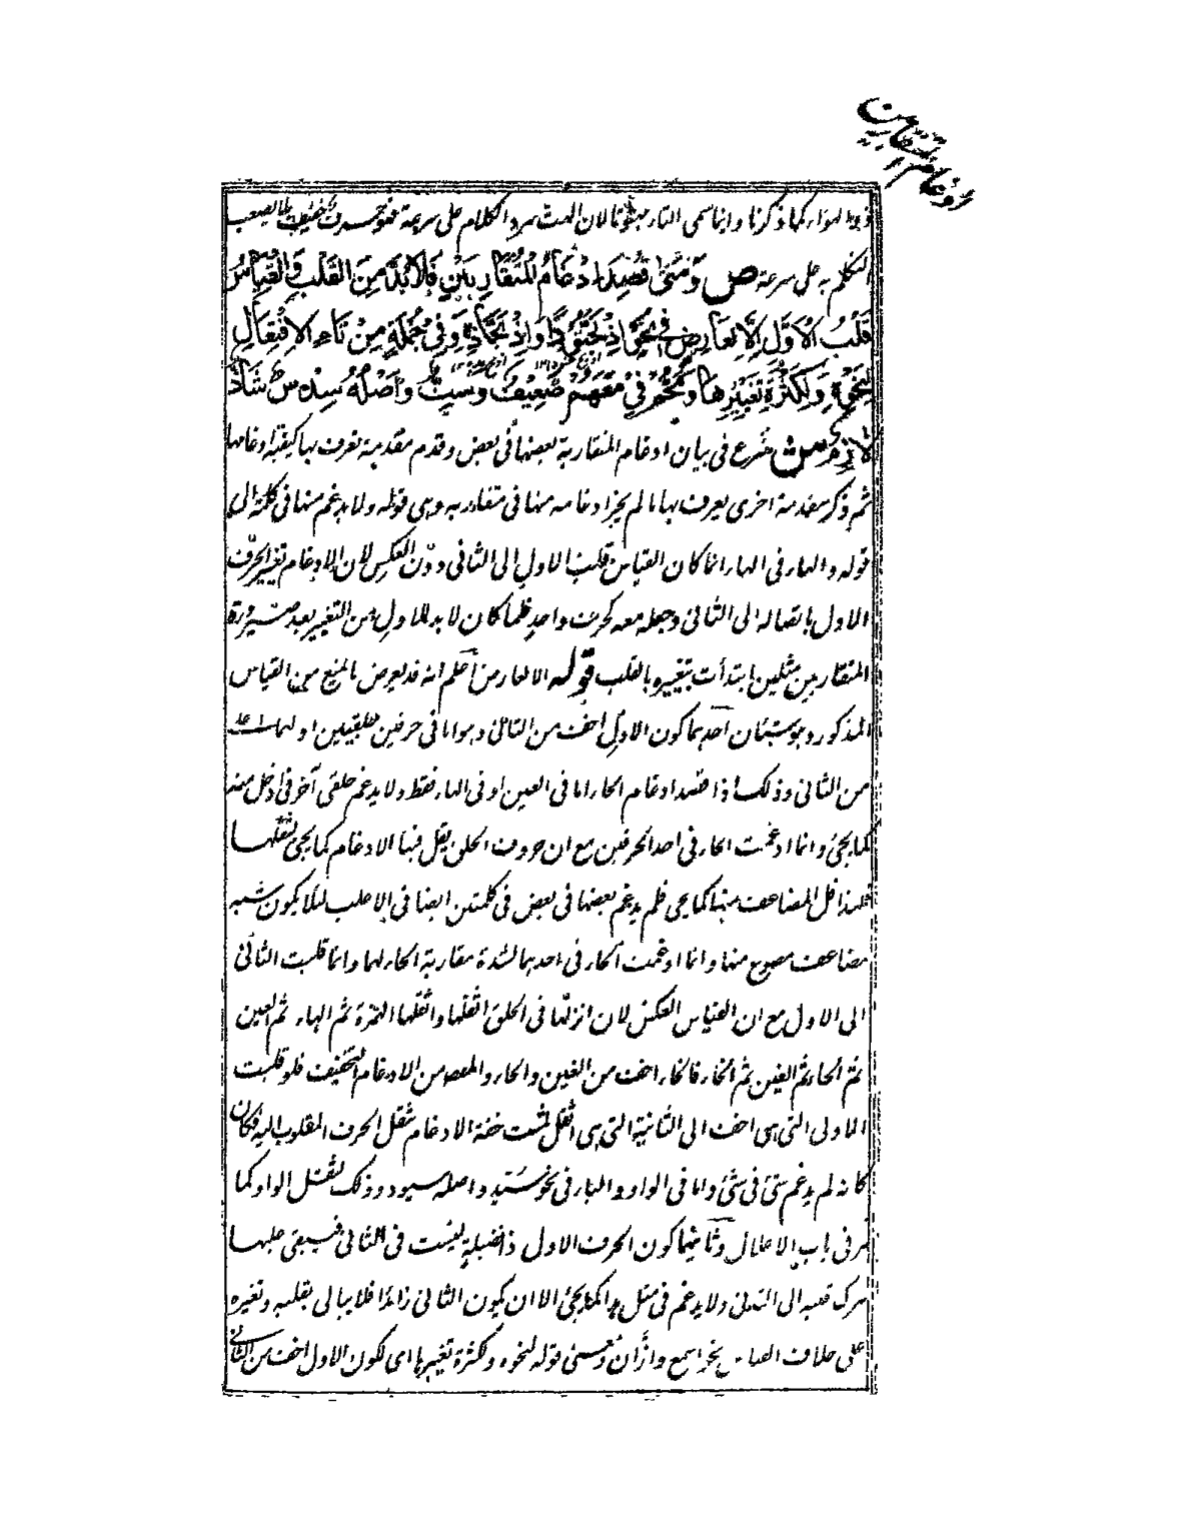 ادغام المتقاربين
هواء كما ذكرنا وانما سمى التاء مهتوتا لان الهت سرد الكلام على سرعة فهو حرف خفيف لا يصعب
التكلم به على سرعة ص وَمَتىٰ قُصِدَ ادْغَامُ الْمُتَقَارِبَيْنِ فَلَابُدَّ مِنَ القَلْبِ وَالْقِيَاسُ
قَلْبُ الْاَوَّلِ اِلَّا لِعَارِضٍ فِي نَحْوِ اذْبَحَّتُودًا وَاذْبَحَّاذِهِ وَفِي جُمْلَةٍ مِنْ تَاءِ الاِفْتِعَالِ
لِنَحْوِهِ وَلِكَثْرَةِ تَغَيُّرِهَا وَمَحُّمْ فِي مَعَهُمْ ضَعِيفٌ وَسِتٌّ وَاَصْلُهُ سِدْسٌ شَاذٌّ
لَازِمٌ ش شرع فى بيان ادغام المتقاربة بعضها فى بعض وقدم مقدمة تعرف بها كيفية ادغامها
ثم ذكر مقدمة اخرى يعرف بها ما لم يجز ادغامه منها فى متقاربه وهى قوله ولا يدغم منها فى كلمة الى
قوله والهاء فى الحاء انما كان القياس قلب الاول الى الثانى دون العكس لان الادغام تغيير الحرف
الاول بايصاله الى الثانى وجعله معه كحرف واحد فلما كان لابد للاول من التغيير بعد صيرورة
المتقاربين مثلين ابتدأت بتغييره بالقلب قوله الا لعارض اعلم انه قد يعرض ما يمنع من القياس
المذكور وهو شيئان احدهما كون الاول اخف من الثانى وهو اما فى حرفين حلقيين اولهما اعلى
من الثانى وذلك اذا قصد ادغام الحاء اما فى العين او فى الهاء فقط ولا يدغم حلقى آخر فى ادخل منه
كما يجئ وانما ادغمت الحاء فى احد الحرفين مع ان حروف الحلق يقل فيها الادغام كما يجئ لثقلها
فلهذا قل المضاعف منها كما يجى فلم يدغم بعضها فى بعض فى كلمتين ايضا فى الاغلب لئلا يكون شبه
مضاعف مصوغ منها وانما ادغمت الحاء فى احدهما لشدة مقاربة الحاء لهما وانما قلبت الثانى
الى الاول مع ان القياس العكس لان انزلها فى الحلق اثقلها واثقلها الهمزة ثم الهاء ثم العين
ثم الحاء ثم الغين ثم الخاء فالخاء اخف من الغين والحاء والمقصود من الادغام التخفيف فلو قلبت
الاولى التى هى اخف الى الثانية التى هى اثقل لمشت خفة الادغام بثقل الحرف المقلوب اليه فكان
كانه لم يدغم شئ فى شئ واما فى الواو والياء فى نحو سيّد واصله سيود وذلك لثقل الواو كما
مر فى باب الاعلال وثانيهما كون الحرف الاول ذا فضيلة ليست فى الثانى فيبقى عليها
بترك قلبه الى الثانى ولا يدغم فى مثل هذا كما يجئ الا ان يكون الثانى زائدا فلا يبالى بقلبه وتغيره
على خلاف القياس نحو اسمع وازّان ومعنى قوله لنحوه ولكثرة تغيرها اى لكون الاول اخف من الثانى